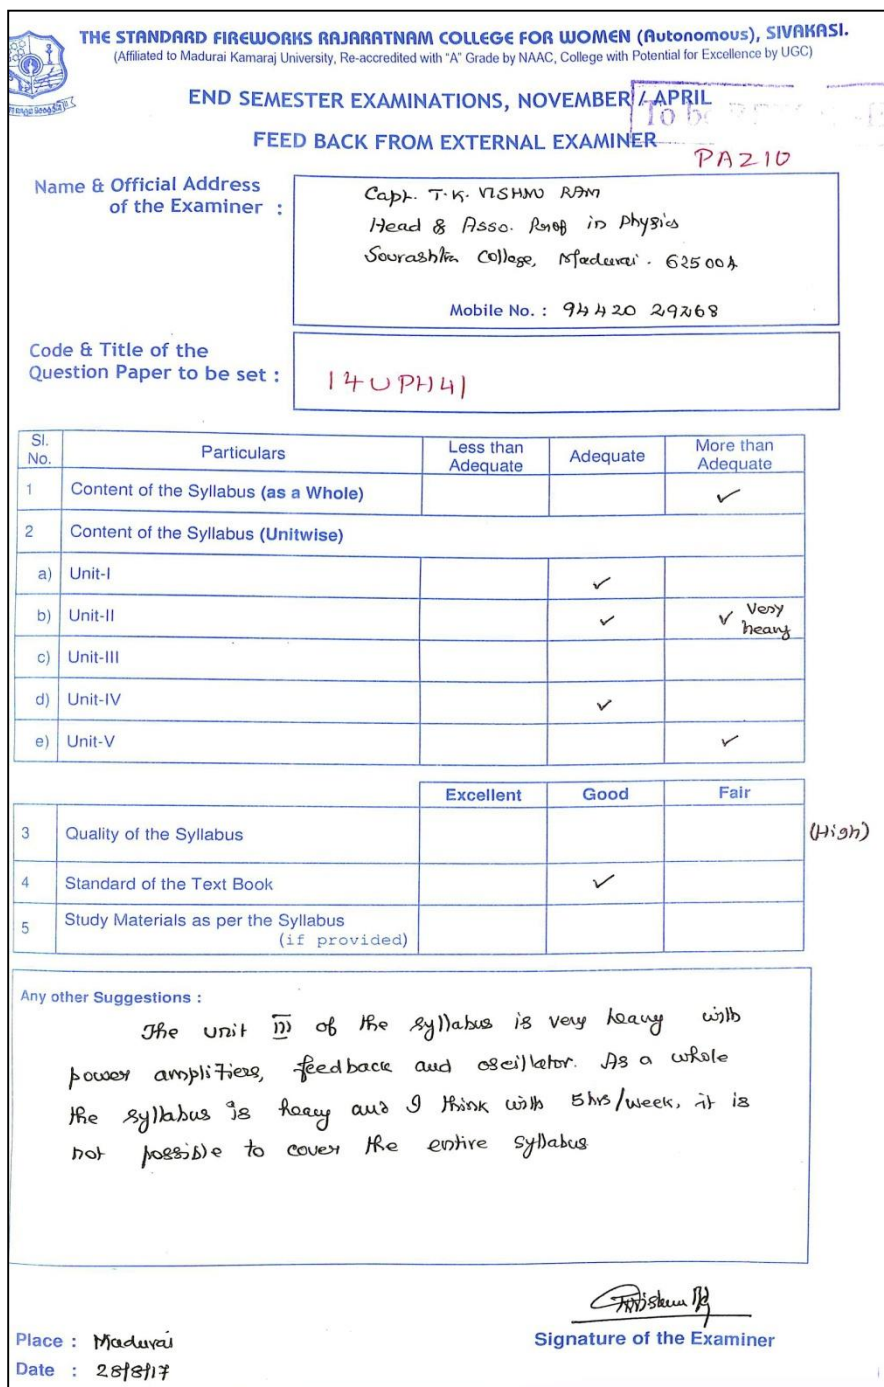 THE STANDARD FIREWORKS RAJARATNAM COLLEGE FOR WOMEN (Autonomous), SIVAKASI.
(Affiliated to Madurai Kamaraj University, Re-accredited with "A" Grade by NAAC, College with Potential for Excellence by UGC)
END SEMESTER EXAMINATIONS, NOVEMBER / APRIL
To be
FEED BACK FROM EXTERNAL EXAMINER
PAZ10
Name & Official Address of the Examiner :
Capt. T.K. VISHNU RAM
Head & Asso. Prof in Physics
Sourashtra College, Madurai. 625004
Mobile No. : 94420 29268
Code & Title of the Question Paper to be set :
14UPH41
Sl. No. Particulars Less than Adequate Adequate More than Adequate
1 Content of the Syllabus (as a Whole) ✓
2 Content of the Syllabus (Unitwise)
a) Unit-I ✓
b) Unit-II ✓ ✓ Very heavy
c) Unit-III
d) Unit-IV ✓
e) Unit-V ✓
Excellent Good Fair
3 Quality of the Syllabus (High)
4 Standard of the Text Book ✓
5 Study Materials as per the Syllabus (if provided)
Any other Suggestions :
The unit III of the syllabus is very heavy with
power amplifiers, feedback and oscillator. As a whole
the syllabus is heavy and I think with 5hrs/week, it is
not possible to cover the entire syllabus
Place : Madurai
Signature of the Examiner
Date : 28/8/17